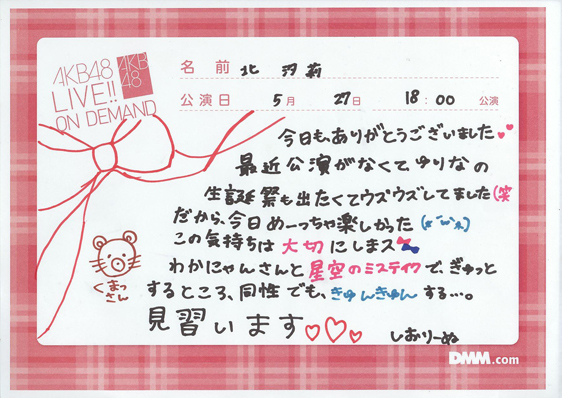 AKB48
LIVE!!
ON DEMAND
AKB
48
名前 北 汐莉
公演日 5月 27日 18:00 公演
今日も、ありがとうございました♥♥
最近公演がなくて、ゆりなの
生誕祭も出たくてウズウズしてました(笑
だから、今日めーっちゃ楽しかった
この気持ちは大切にしまス
わかにゃんさんと星空のミステイクで、ぎゅっと
するところ、同性でも、きゅんきゅんする…。
見習います♡♡♡
くまっ
さん
しおりーぬ
DMM.com